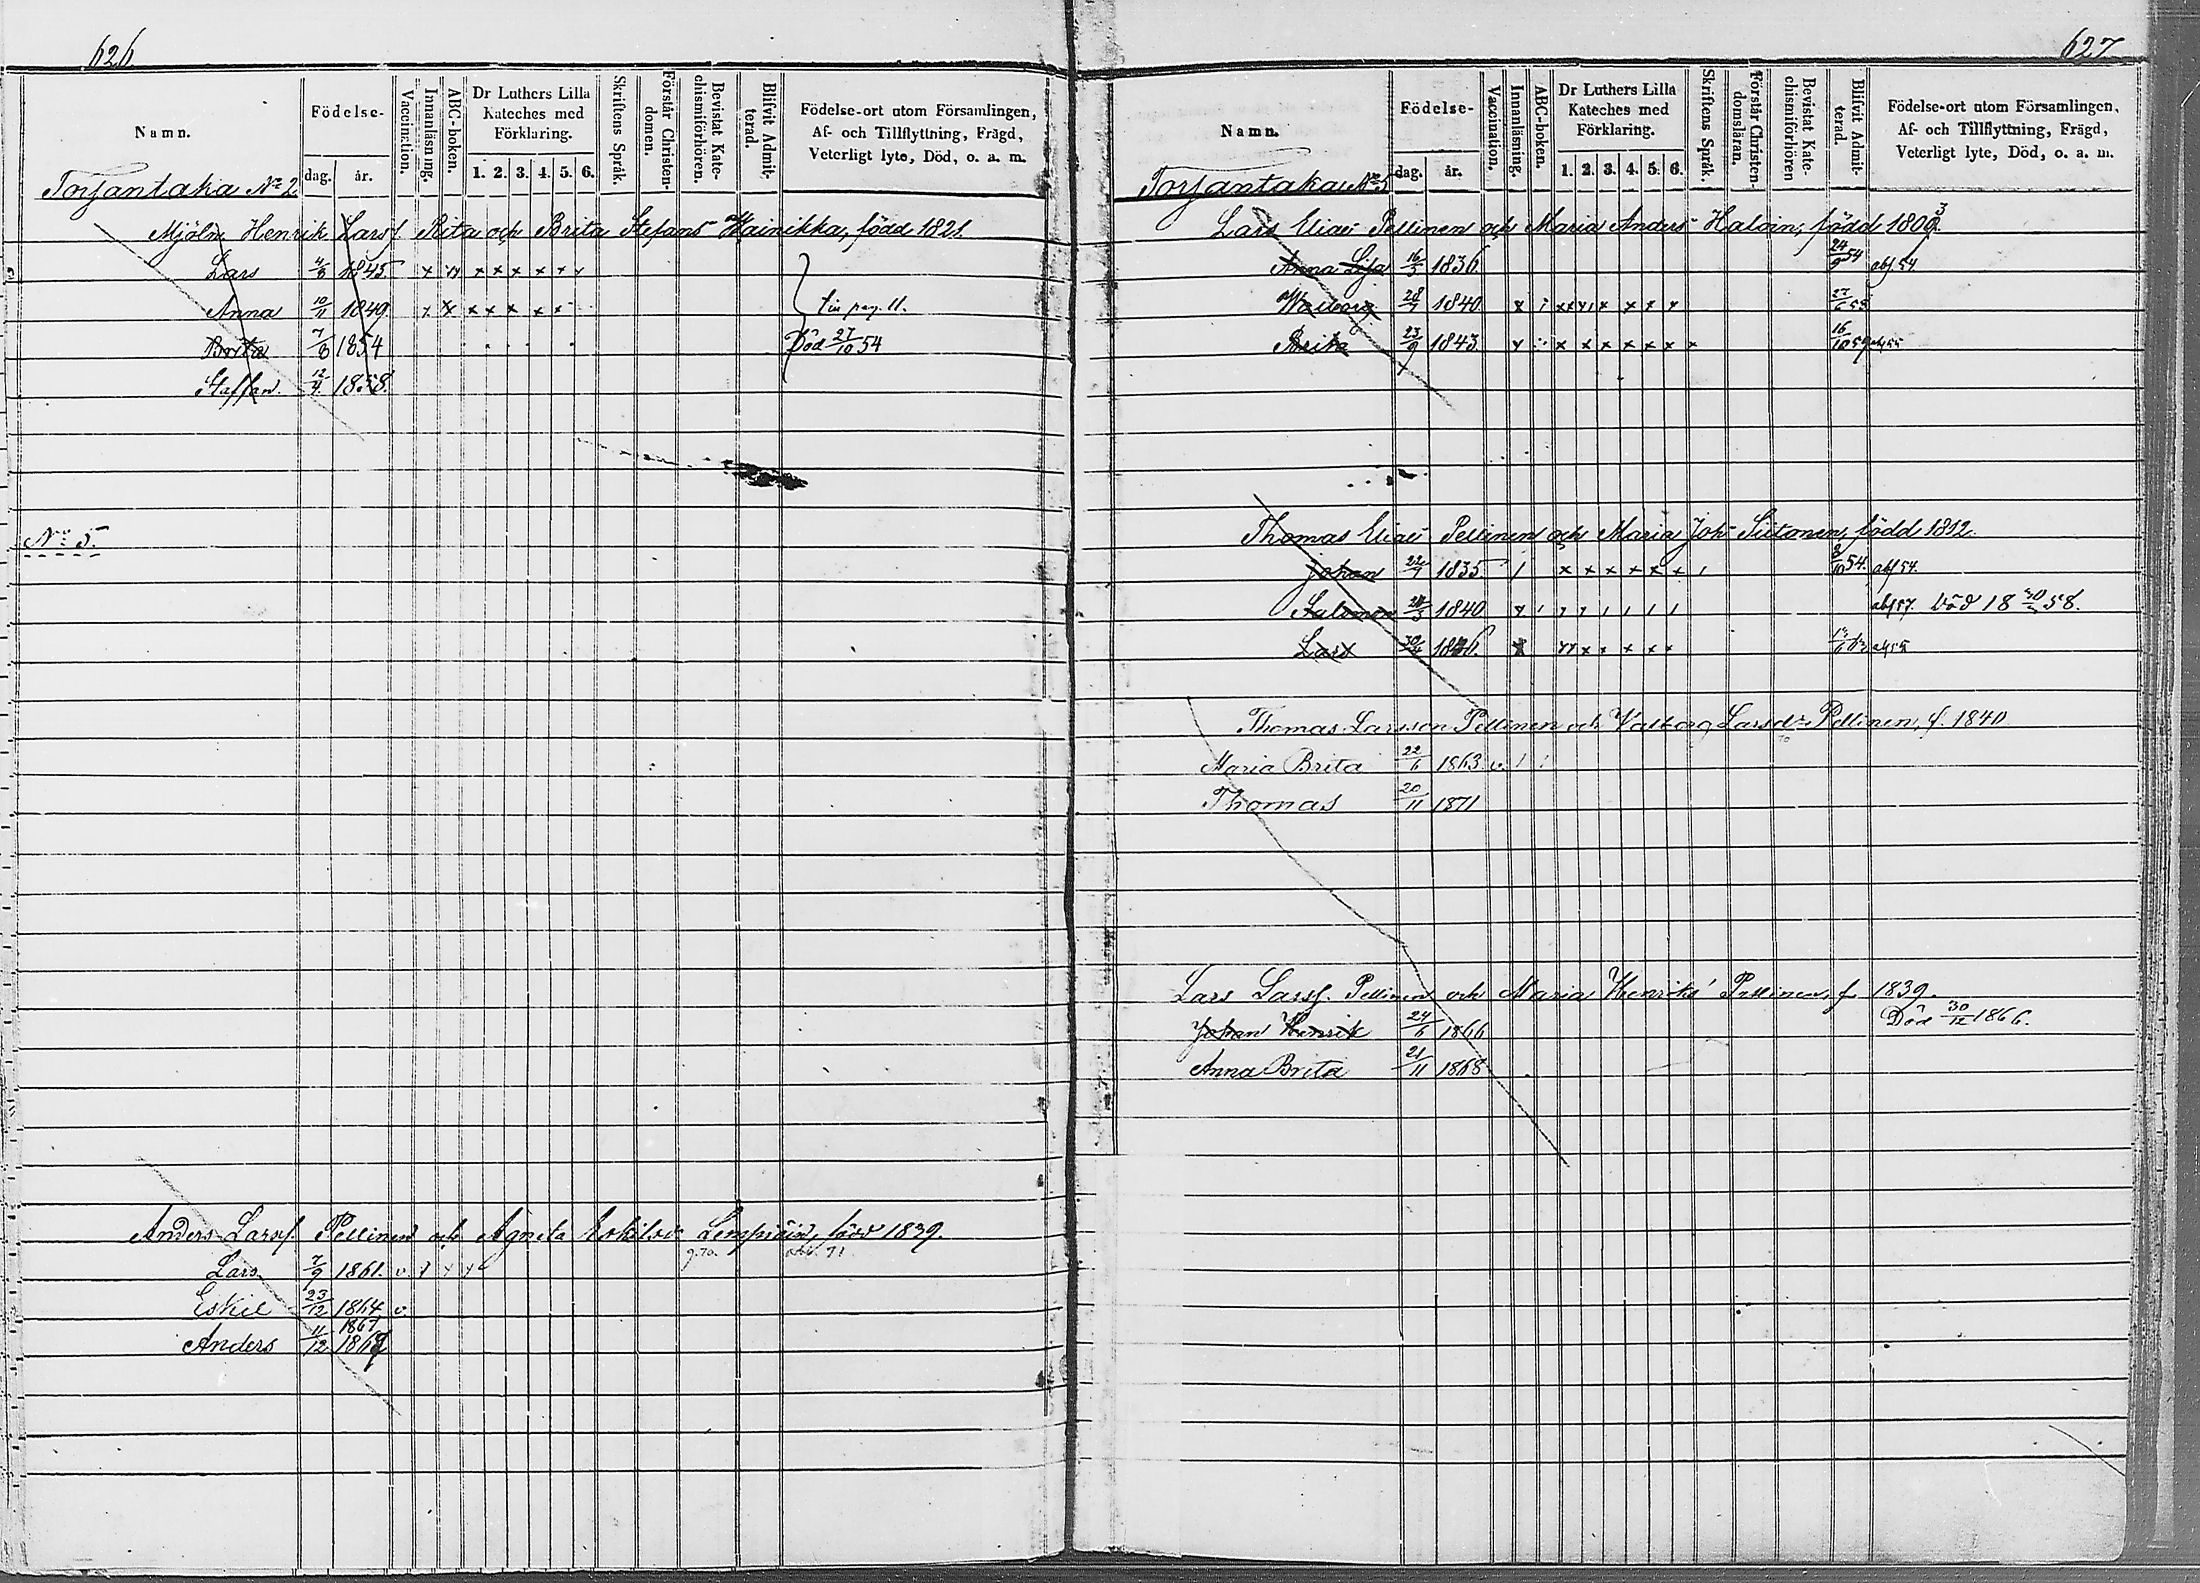 626
Namn.
Födelse-
dag. år.
Vaccination.
Innanläsning.
ABC-boken.
Dr Luthers Lilla
Kateches med
Förklaring.
1. 2. 3. 4. 5. 6.
Skriftens Språk.
Förstår Christen-
domen.
Bevistat Kate-
chismiförhören.
Blifvit Admit-
terad.
Födelse-ort utom Församlingen,
Af- och Tillflyttning, Frägd,
Veterligt lyte, Död, o. a. m.
Torjantaka No 2
Mjöln. Henrik Larsf. Rita och Brita Stefans Hainikka, född 1821.
Lars 4/3 1845
Anna 10/11 1849 pag. 11.
Brita 7/8 1854 Död 27/10 54
Staffan. 12/4 1858.
No 5.
Anders Larsf. Pellinen och Agneta Eskilsd. Lempiäin, född 1839.
Lars 7/9 1861. v.
Eskil 23/12 1864 v.
1867
Anders 11/12 1869
627
Namn.
Födelse-
dag. år.
Vaccination.
Innanläsning.
ABC-boken.
Dr Luthers Lilla
Kateches med
Förklaring.
1. 2. 3. 4. 5. 6.
Skriftens Språk.
Förstår Christen-
domsläran.
Bevistat Kate-
chismiförhören
Blifvit Admit-
terad.
Födelse-ort utom Församlingen,
Af- och Tillflyttning, Frägd,
Veterligt lyte, Död, o. a. m.
Torjantaka No 5
Lars Eliae Pellinen och Maria Anders Haloin, född 1803
Anna Lisa 16/3 1836 24/9 54 abf 54.
Walborg 28/7 1840
Brita 23/9 1843 16/10 59
Thomas Eliae Pellinen och Maria Joh Siitonen, född 1812.
Johan 22/7 1835 8/10 54. abf 54.
Salomon 1840 abf 57. Död 18 58.
Lars 30/4 1846.
Thomas Larsson Pellinen och Valborg Larsdr Pellinen, f. 1840
Maria Brita 22/6 1863 v.
Thomas 20/11 1871
Lars Larsf. Pellinen och Maria Henriks Pellinen, f 1839.
Johan Henrik 24/6 1866 Död 30/12 1866.
Anna Brita 21/11 1868